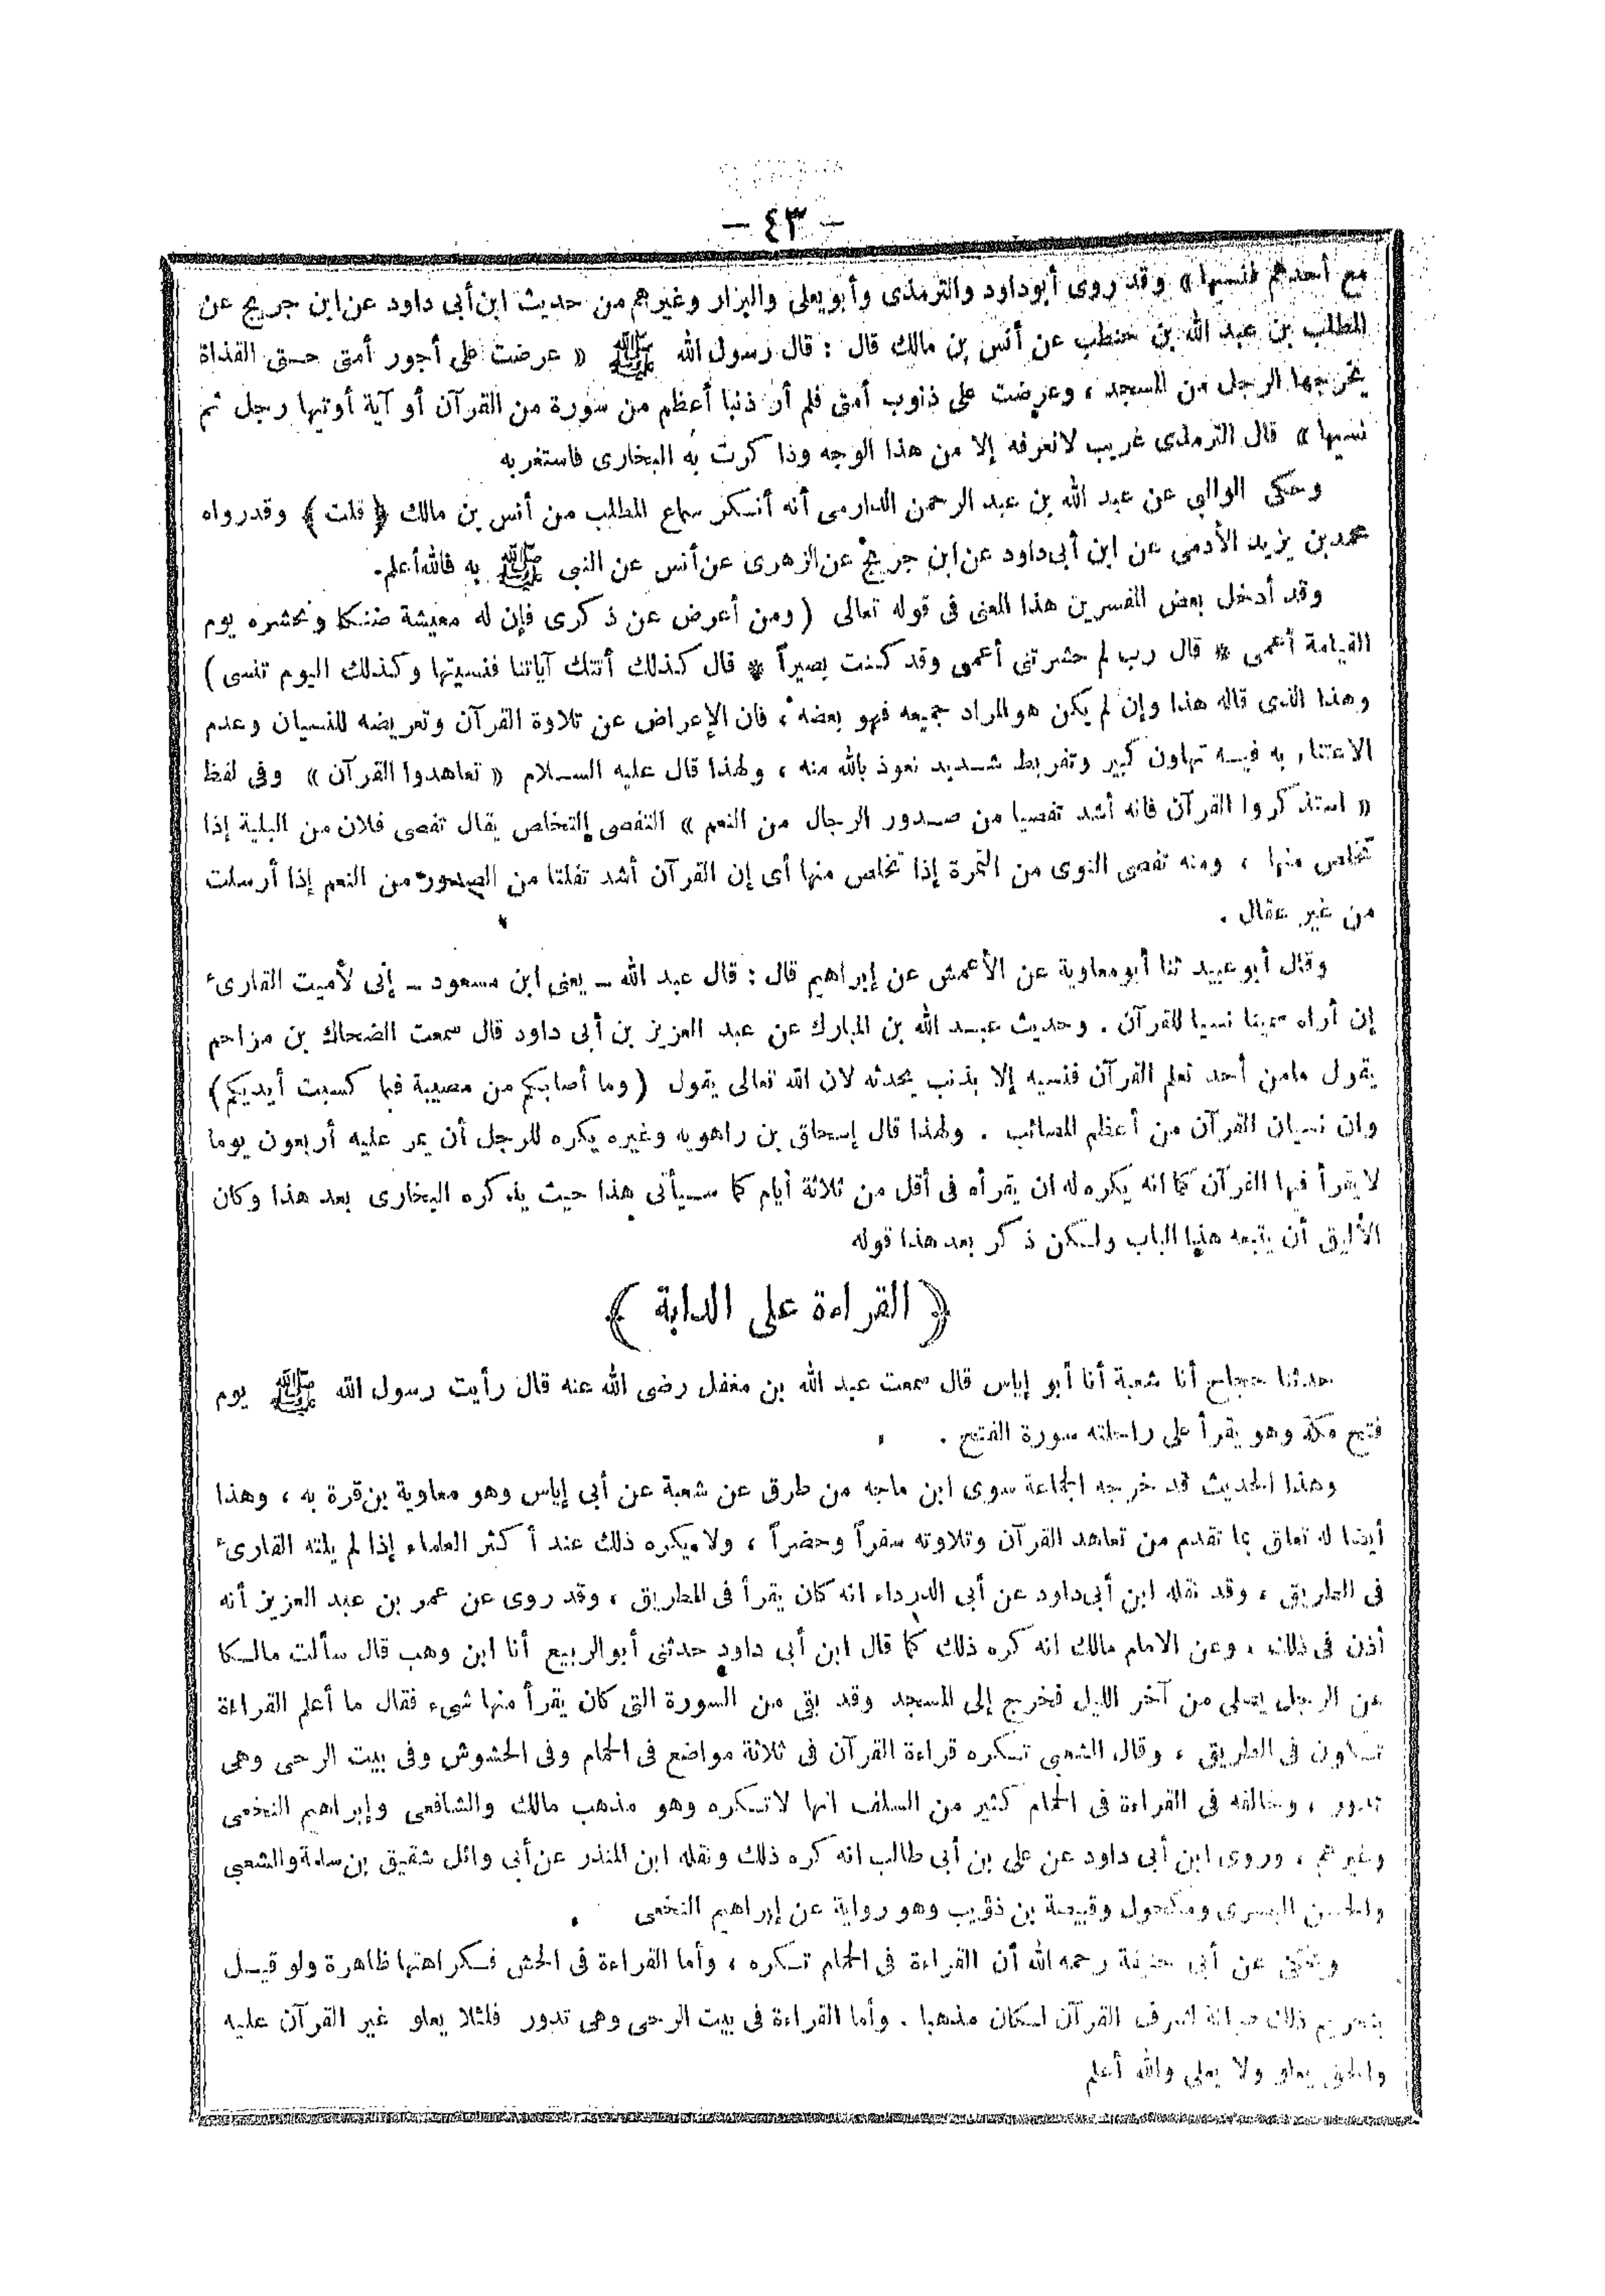 - ٤٣ -
مع أحدهم فنسيها » وقد روى أبوداود والترمذى وأبويعلى والبزار وغيرهم من حديث ابن أبى داود عن ابن جريج عن
المطلب بن عبد الله بن حنطب عن أنس بن مالك قال : قال رسول الله ﷺ « عرضت على أجور أمتى حتى القذاة
يخرجها الرجل من المسجد ، وعرضت على ذنوب أمتى فلم أر ذنبا أعظم من سورة من القرآن أو آية أوتيها رجل ثم
نسيها » قال الترمذى غريب لانعرفه إلا من هذا الوجه وذا كرت به البخارى فاستغربه
وحكى الوالبي عن عبد الله بن عبد الرحمن الدارمى أنه أنكر سماع المطلب من أنس بن مالك ﴿ قلت ﴾ وقدرواه
محمدبن يزيد الأدمى عن ابن أبى داود عن ابن جريج عن الزهرى عن أنس عن النبى ﷺ به فالله أعلم.
وقد أدخل بعض المفسرين هذا المعنى فى قوله تعالى ( ومن أعرض عن ذ كرى فإن له معيشة ضنكا ونحشره يوم
القيامة أعمى * قال رب لم حشرتنى أعمى وقد كنت بصيراً * قال كذلك أتتك آياتنا فنسيتها وكذلك اليوم تنسى )
وهذا الذى قاله هذا وإن لم يكن هو المراد جميعه فهو بعضه ، فان الإعراض عن تلاوة القرآن وتعريضه للنسيان وعدم
الاعتناء به فيه تهاون كبير وتفريط شديد نعوذ بالله منه ، ولهذا قال عليه السلام « تعاهدوا القرآن » وفى لفظ
« استذ كروا القرآن فانه أشد تفصيا من صدور الرجال من النعم » التفصى التخلص يقال تفصى فلان من البلية إذا
تخلص منها ، ومنه تفصى النوى من التمرة إذا تخلص منها أى إن القرآن أشد تفلتا من الصدور من النعم إذا أرسلت
من غير عقال .
وقال أبو عبيد ثنا أبو معاوية عن الأعمش عن إبراهيم قال : قال عبد الله ــ يعنى ابن مسعود ــ إنى لأميت القارىء
إن أراه سمينا نسيا للقرآن . وحديث عبد الله بن المبارك عن عبد العزيز بن أبى داود قال سمعت الضحاك بن مزاحم
يقول مامن أحد تعلم القرآن فنسيه إلا بذنب يحدثه لان الله تعالى يقول ( وما أصابكم من مصيبة فبما كسبت أيديكم )
وان نسيان القرآن من أعظم المصائب . ولهذا قال إسحاق بن راهويه وغيره يكره للرجل أن يمر عليه أربعون يوما
لا يقرأ فيها القرآن كما انه يكره له ان يقرأه فى أقل من ثلاثة أيام كما سيأتى هذا حيث يذ كره البخارى بعد هذا وكان
الأليق أن يتبعه هذا الباب ولكن ذ كر بعد هذا قوله
﴿ القراءة على الدابة ﴾
حدثنا حجاج أنا شعبة أنا أبو إياس قال سمعت عبد الله بن مغفل رضى الله عنه قال رأيت رسول الله ﷺ يوم
فتح مكة وهو يقرأ على راحلته سورة الفتح .
وهذا الحديث قد خرجه الجماعة سوى ابن ماجه من طرق عن شعبة عن أبى إياس وهو معاوية بن قرة به ، وهذا
أيضا له تعلق بما تقدم من تعاهد القرآن وتلاوته سفراً وحضراً ، ولا يكره ذلك عند أ كثر العلماء إذا لم يلته القارىء
فى الطريق ، وقد نقله ابن أبى داود عن أبى الدرداء انه كان يقرأ فى الطريق ، وقد روى عن عمر بن عبد العزيز أنه
أذن فى ذلك ، وعن الامام مالك انه كره ذلك كما قال ابن أبى داود حدثنى أبوالربيع أنا ابن وهب قال سألت مالكا
عن الرجل يصلى من آخر الليل فخرج إلى المسجد وقد بقى من السورة التى كان يقرأ منها شىء فقال ما أعلم القراءة
تكون فى الطريق ، وقال الشعبى تكره قراءة القرآن فى ثلاثة مواضع فى الحمام وفى الحشوش وفى بيت الرحى وهى
تدور ، وخالفه فى القراءة فى الحمام كثير من السلف انها لاتكره وهو مذهب مالك والشافعى وإبراهيم النخعى
وغيرهم ، وروى ابن أبى داود عن على بن أبى طالب انه كره ذلك ونقله ابن المنذر عن أبى وائل شقيق بن سلمة والشعبى
والحسن البصرى ومكحول وقبيصة بن ذؤيب وهو رواية عن إبراهيم النخعى .
ويحكى عن أبى حنيفة رحمه الله أن القراءة فى الحمام تكره ، وأما القراءة فى الحش فكراهتها ظاهرة ولو قيل
بتحريم ذلك صيانة لشرف القرآن لكان مذهبا . وأما القراءة فى بيت الرحى وهى تدور فلئلا يعلو غير القرآن عليه
والحق يعلو ولا يعلى والله أعلم